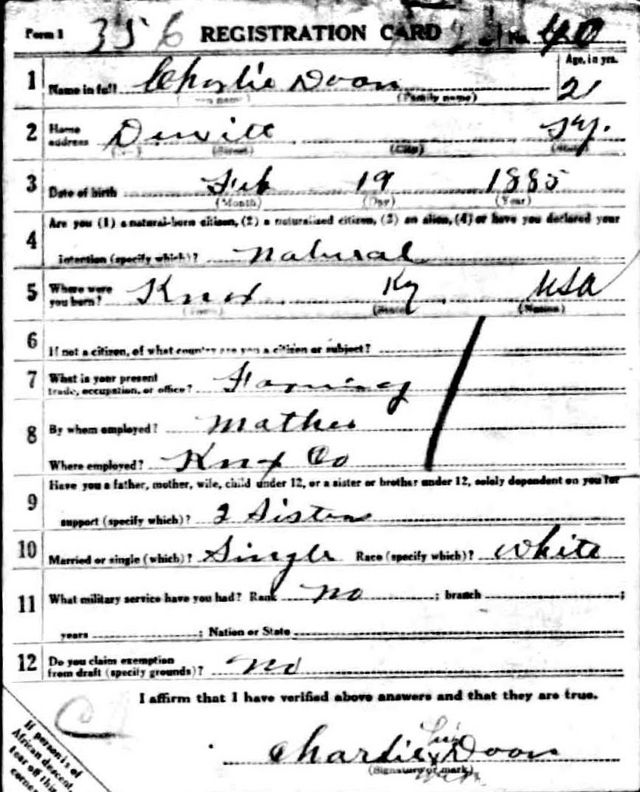 Form 1 356 REGISTRATION CARD No. 40
Age, in yrs.
1 Name in full Charlie Doan 21
(Family name)
2 Home address Dewitt Ky.
(Street) (City) (State)
3 Date of birth Feb 19 1885
(Month) (Day) (Year)
4 Are you (1) a natural-born citizen, (2) a naturalized citizen, (3) an alien, (4) or have you declared your
intention (specify which)? Natural
5 Where were you born? Knox Ky USA
(Town) (State) (Nation)
6 If not a citizen, of what country are you a citizen or subject?
7 What is your present trade, occupation, or office? Farming
8 By whom employed? Mother
Where employed? Knox Co
9 Have you a father, mother, wife, child under 12, or a sister or brother under 12, solely dependent on you for
support (specify which)? 2 Sisters
10 Married or single (which)? Single Race (specify which)? White
11 What military service have you had? Rank no ; branch ;
years ; Nation or State
12 Do you claim exemption from draft (specify grounds)? no
I affirm that I have verified above answers and that they are true.
Charlie his x Doan
(Signature or mark) mark
If person is of
African descent,
tear off this
corner